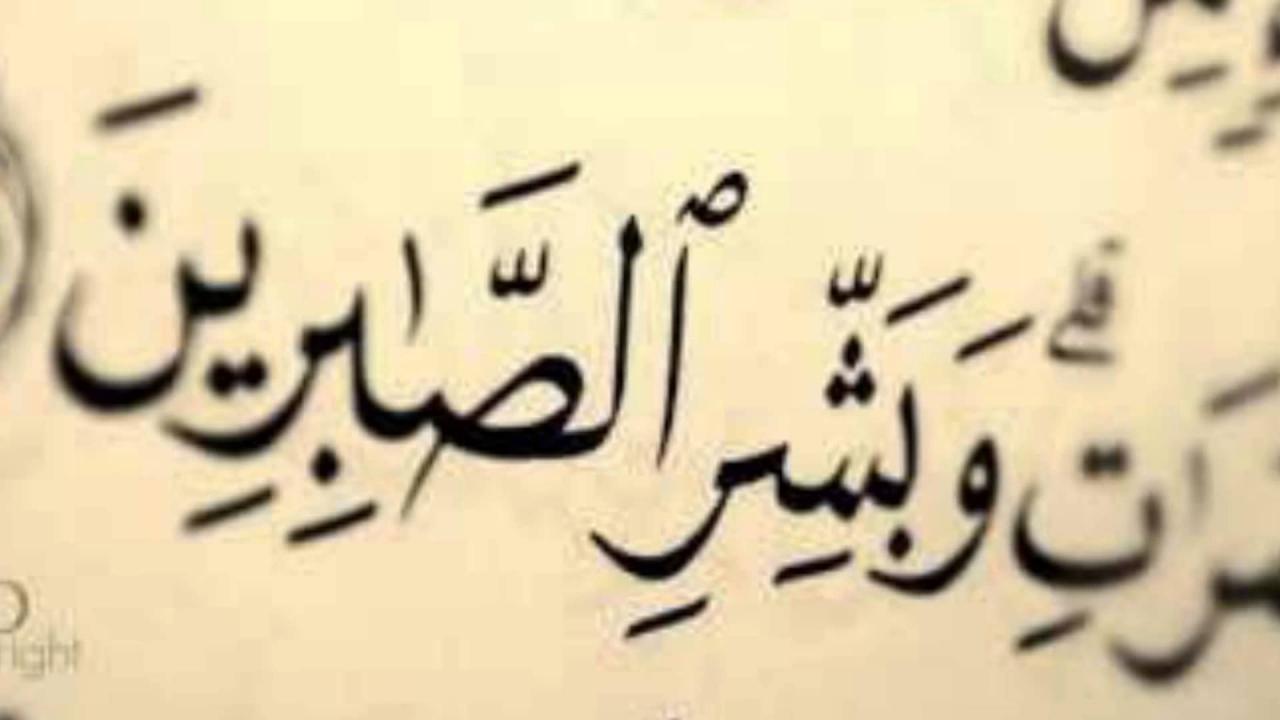 ـمَرَٰتِ ۗ وَبَشِّرِ ٱلصَّـٰبِرِينَ
right